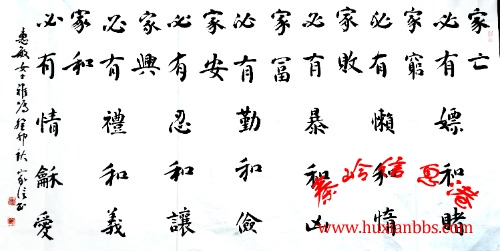 家亡
必有嫖和賭
家窮
必有懶和惰
家敗
必有暴和凶
家富
必有勤和儉
家安
必有忍和讓
家興
必有禮和義
家和
必有情龢愛
惠敏女士雅 癸卯秋 家信書
秦岭信息港
www.huxianbbs.com